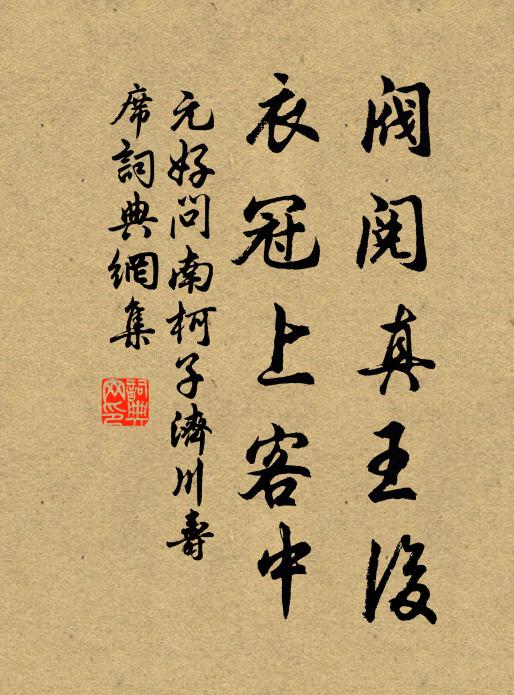 閥閱真王後
衣冠上客中
元好問南柯子濟川壽
席詞典網集
詞典網印